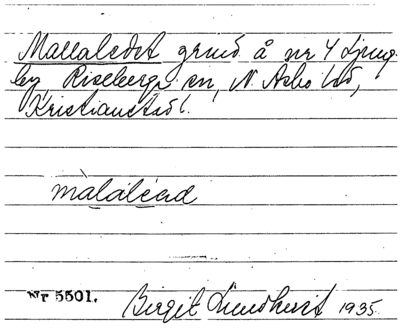 Mallaledet grund å nr 4 Ljung-
by, Riseberga sn, N. Åsbo hd,
Kristianstad l.
màlaléad
Nr 5501.
Birgit Lundkvist 1935